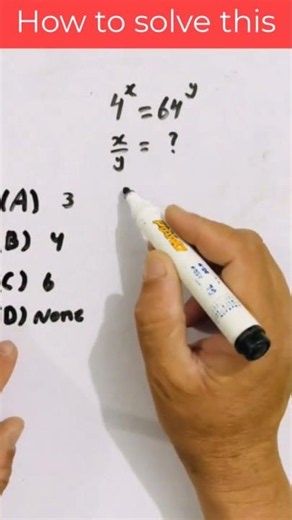 How to solve this
4^x = 64^y
x/y = ?
(A) 3
B) 4
C) 6
D) None